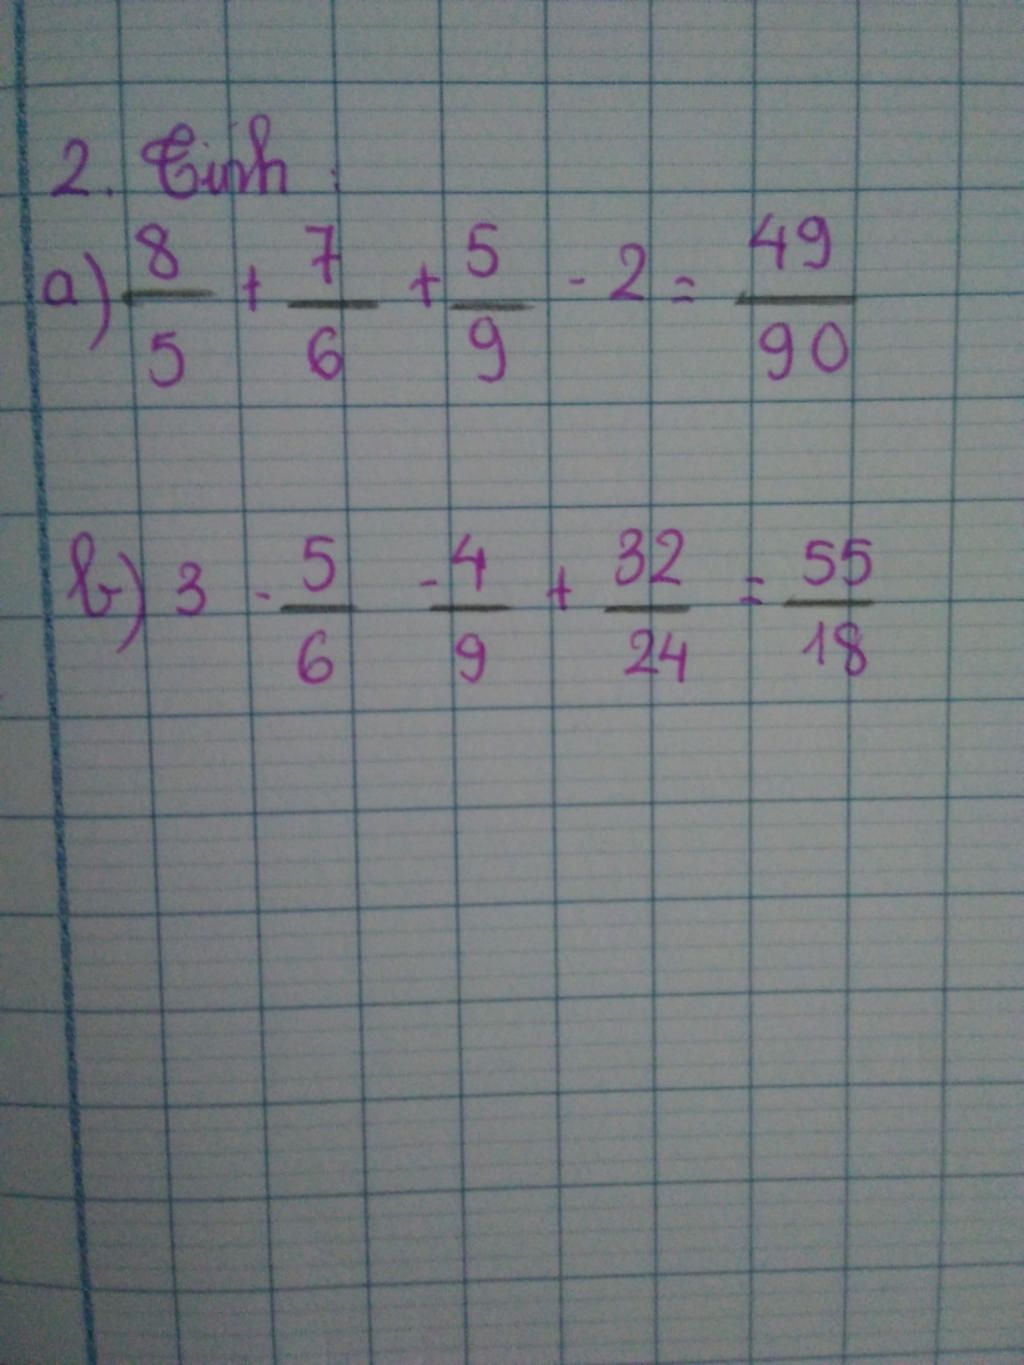 2. Tính :
a) 8/5 + 7/6 + 5/9 - 2 = 49/90
b) 3 - 5/6 - 4/9 + 32/24 = 55/18